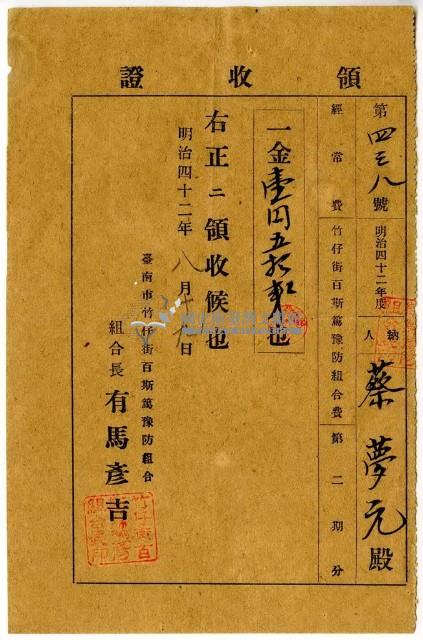 領收證
第四三八號 明治四十二年度 納人 蔡夢元殿
經常費 竹仔街百斯篤豫防組合費 第二期分
一金壹円五拾也
右正ニ領收候也
明治四十二年八月日
臺南市竹仔街百斯篤豫防組合
組合長 有馬彥吉